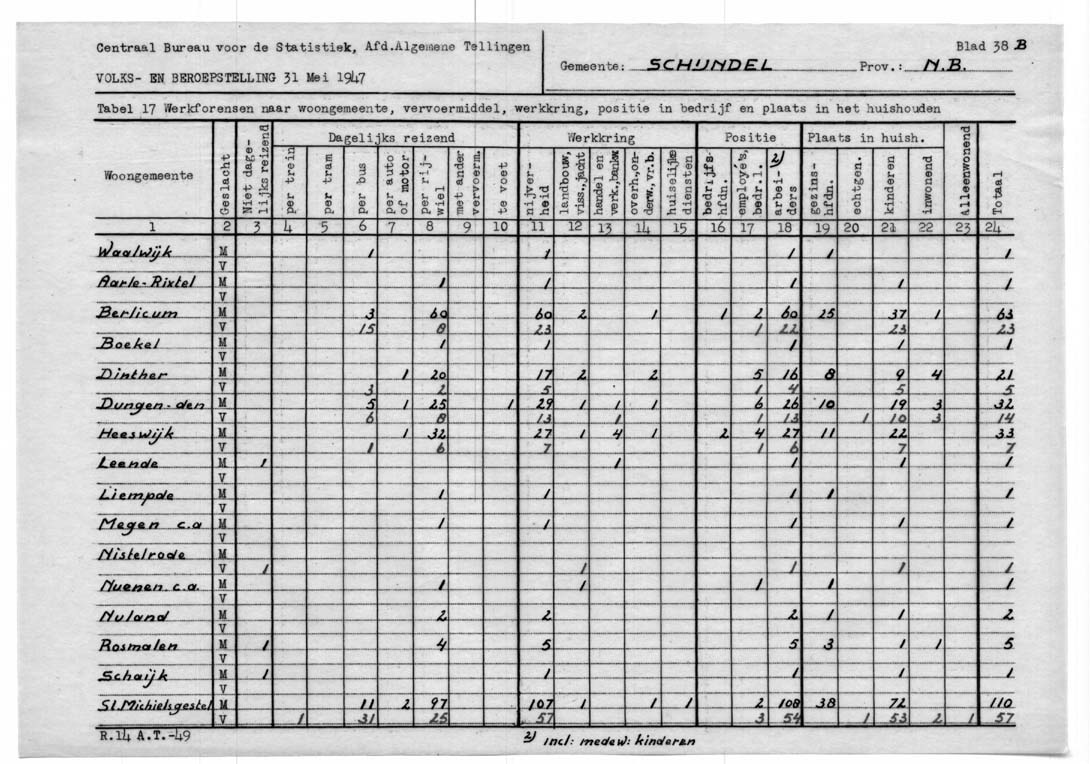 Centraal Bureau voor de Statistiek, Afd.Algemene Tellingen
Blad 38 B
Gemeente: SCHIJNDEL Prov.: N.B.
VOLKS- EN BEROEPSTELLING 31 Mei 1947
Tabel 17 Werkforensen naar woongemeente, vervoermiddel, werkkring, positie in bedrijf en plaats in het huishouden
Woongemeente
Geslacht
Niet dage-
lijks reizend
Dagelijks reizend
per trein
per tram
per bus
per auto
of motor
per rij-
wiel
met ander
vervoerm.
te voet
Werkkring
nijver-
heid
landbouw,
viss.,jacht
handel en
verk.,bankw
overh.,on-
derw.,vr.b.
huiselijke
diensten
Positie
bedrijfs-
hfdn.
employé's,
bedr.l.
2)
arbei-
ders
Plaats in huish.
gezins-
hfdn.
echtgen.
kinderen
inwonend
Alleenwonend
Totaal
1 2 3 4 5 6 7 8 9 10 11 12 13 14 15 16 17 18 19 20 21 22 23 24
Waalwijk M 1 1 1 1 1
V
Aarle-Rixtel M 1 1 1 1 1
V
Berlicum M 3 60 60 2 1 1 2 60 25 37 1 63
V 15 8 23 1 22 23 23
Boekel M 1 1 1 1 1
V
Dinther M 1 20 17 2 2 5 16 8 9 4 21
V 3 2 5 1 4 5 5
Dungen-den M 5 1 25 1 29 1 1 1 6 26 10 19 3 32
V 6 8 13 1 1 13 1 10 3 14
Heeswijk M 1 32 27 1 4 1 2 4 27 11 22 33
V 1 6 7 1 6 7 7
Leende M 1 1 1 1 1
V
Liempde M 1 1 1 1 1
V
Megen c.a M 1 1 1 1 1
V
Nistelrode M
V 1 1 1 1 1
Nuenen c.a. M 1 1 1 1 1
V
Nuland M 2 2 2 1 1 2
V
Rosmalen M 1 4 5 5 3 1 1 5
V
Schaijk M 1 1 1 1 1
V
St.Michielsgestel M 11 2 97 107 1 1 1 2 108 38 72 110
V 1 31 25 57 3 54 1 53 2 1 57
R.14 A.T.-49
2) incl: medew: kinderen